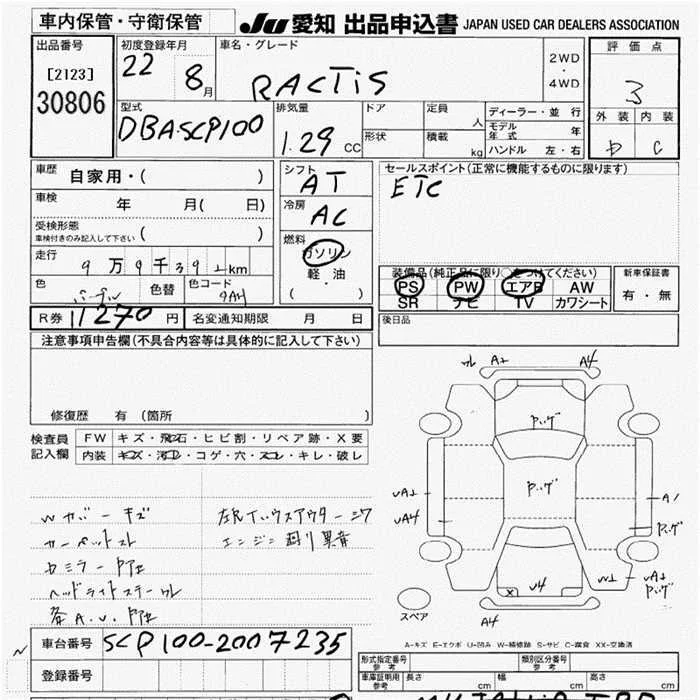 車内保管・守衛保管
JU 愛知 出品申込書 JAPAN USED CAR DEALERS ASSOCIATION
出品番号
[2123]
30806
初度登録年月
22 8 月
車名・グレード
RACTIS
2WD
・
4WD
評価点
3
外装 内装
D C
型式
DBA-SCP100
排気量
1.29 CC
ドア
定員 人
形状
積載 kg
ディーラー・並行
モデル年式 年
ハンドル 左・右
車歴
自家用・( )
車検 年 月( 日)
受検形態
車検付きのみ記入して下さい ( )
走行
9万9千392km
色
パープル
色替
色コード
9AH
R券 11270 円
名変通知期限 月 日
シフト
AT
冷房
AC
燃料
ガソリン
軽・油
( ・ )
セールスポイント(正常に機能するものに限ります)
ETC
装備品(純正品に限り○をつけてください)
PS PW エアB AW
SR ナビ TV カワシート
新車保証書
有・無
後日品
注意事項申告欄(不具合内容等は具体的に記入して下さい)
修復歴 有 (箇所 )
検査員
記入欄
FW キズ・飛石・ヒビ割・リペア跡・X要
内装 キズ・汚レ・コゲ・穴・スレ・キレ・破レ
Wカバーキズ
カーペットスレ
ヘッドライトスチール
エンジン廻り異音
A2 A4
A1
U4
A4
スペア
A-キズ E-エクボ U-凹み W-補修跡 S-サビ C-腐食 XX-交換済
車台番号 SCP100-2007235
登録番号
形式指定番号
参考
類別区分番号
参考
車庫証明用
参考
長さ cm 幅 cm 高さ cm